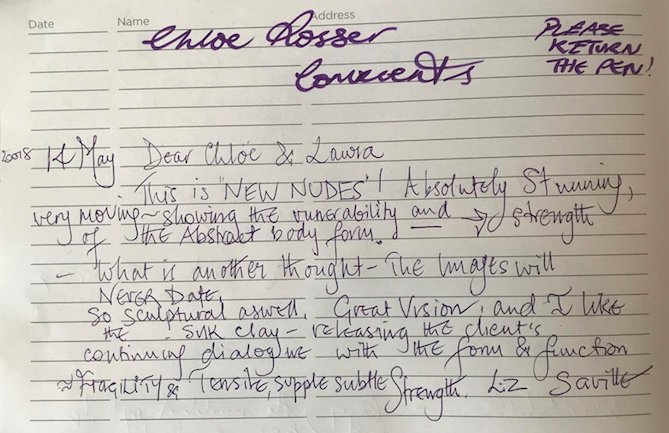 Date Name Address
Chloe Rosser
Comments
PLEASE
RETURN
THE PEN!
2018 14 May Dear Chloë & Laura
This is "NEW NUDES"! Absolutely Stunning,
very moving ~ showing the vunerability and → strength
of the Abstract body form.
- What is another thought - The Images will
NEVER DATE.
So sculptural aswell. Great Vision, and I like
the clay - releasing the client's
continuing dialogue with the form & function
FRAGILITY & Tensile, supple subtle Strength. Liz Saville